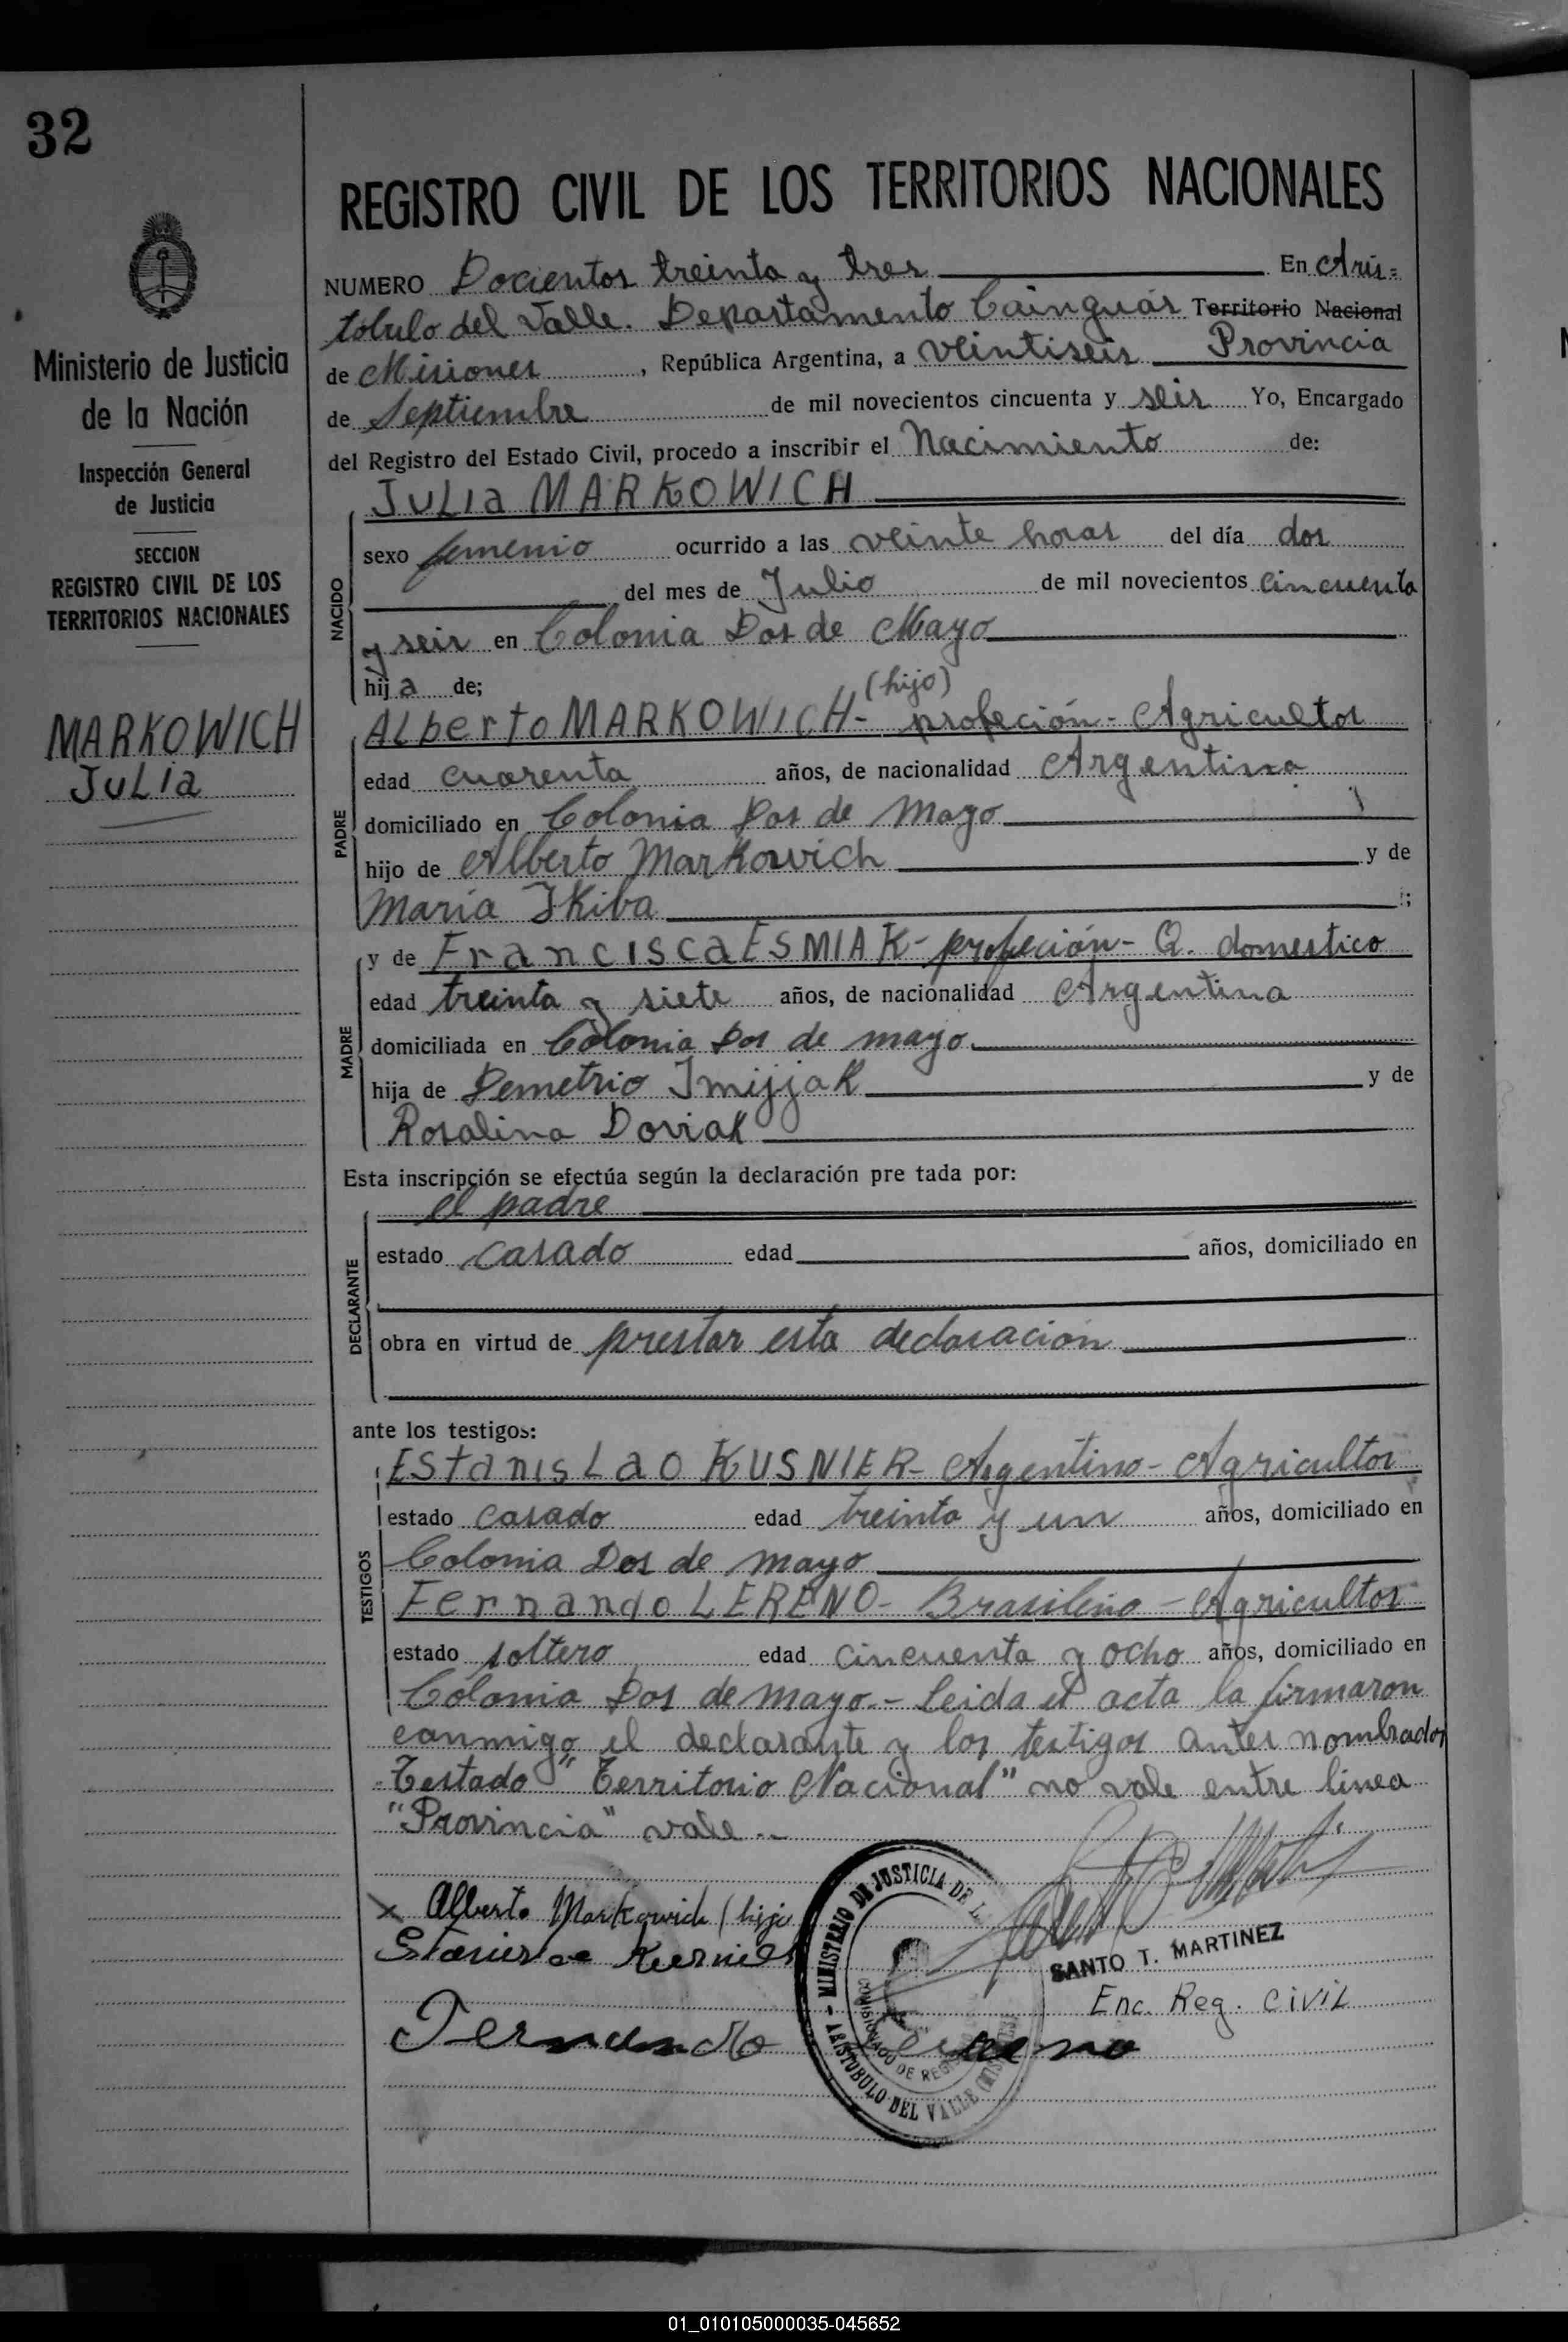 32
Ministerio de Justicia
de la Nación
Inspección General
de Justicia
SECCION
REGISTRO CIVIL DE LOS
TERRITORIOS NACIONALES
MARKOWICH
Julia
REGISTRO CIVIL DE LOS TERRITORIOS NACIONALES
NUMERO Docientos treinta y tres En Aris=
tobulo del Valle. Departamento Cainguás Territorio Nacional
Provincia
de Misiones, República Argentina, a veintiseis
de Septiembre de mil novecientos cincuenta y seis Yo, Encargado
del Registro del Estado Civil, procedo a inscribir el Nacimiento de:
Julia MARKOWICH
NACIDO
sexo femenio ocurrido a las veinte horas del día dos
del mes de Julio de mil novecientos cincuenta
y seis en Colonia Dos de Mayo
hija de;
(hijo)
Alberto MARKOWICH- profeción- Agricultor
PADRE
edad cuarenta años, de nacionalidad Argentina
domiciliado en Colonia Dos de Mayo
hijo de Alberto Markowich y de
Maria Ikiba ;
y de Francisca ESMIAK- profeción- Q. domestico
MADRE
edad treinta y siete años, de nacionalidad Argentina
domiciliada en Colonia Dos de mayo
hija de Demetrio Imijjak y de
Rosalina Doviak
Esta inscripción se efectúa según la declaración pre tada por:
el padre
DECLARANTE
estado casado edad años, domiciliado en
obra en virtud de prestar esta declaración
ante los testigos:
TESTIGOS
Estanislao KUSNIER- Argentino- Agricultor
estado casado edad treinta y un años, domiciliado en
Colonia Dos de mayo
Fernando LERENO- Brasileño- Agricultor
estado soltero edad cincuenta y ocho años, domiciliado en
Colonia Dos de mayo.- leida el acta la firmaron
conmigo el declarante y los testigos antes nombrados
Testado "Territorio Nacional" no vale entre linea
"Provincia" vale.-
x Alberto Markowich (hijo
MINISTERIO DE JUSTICIA DE L
COMISIONADO DE REG
ARISTOBULO DEL VALLE
SANTO T. MARTINEZ
Enc. Reg. Civil
Fernando Lereno
01_010105000035-045652